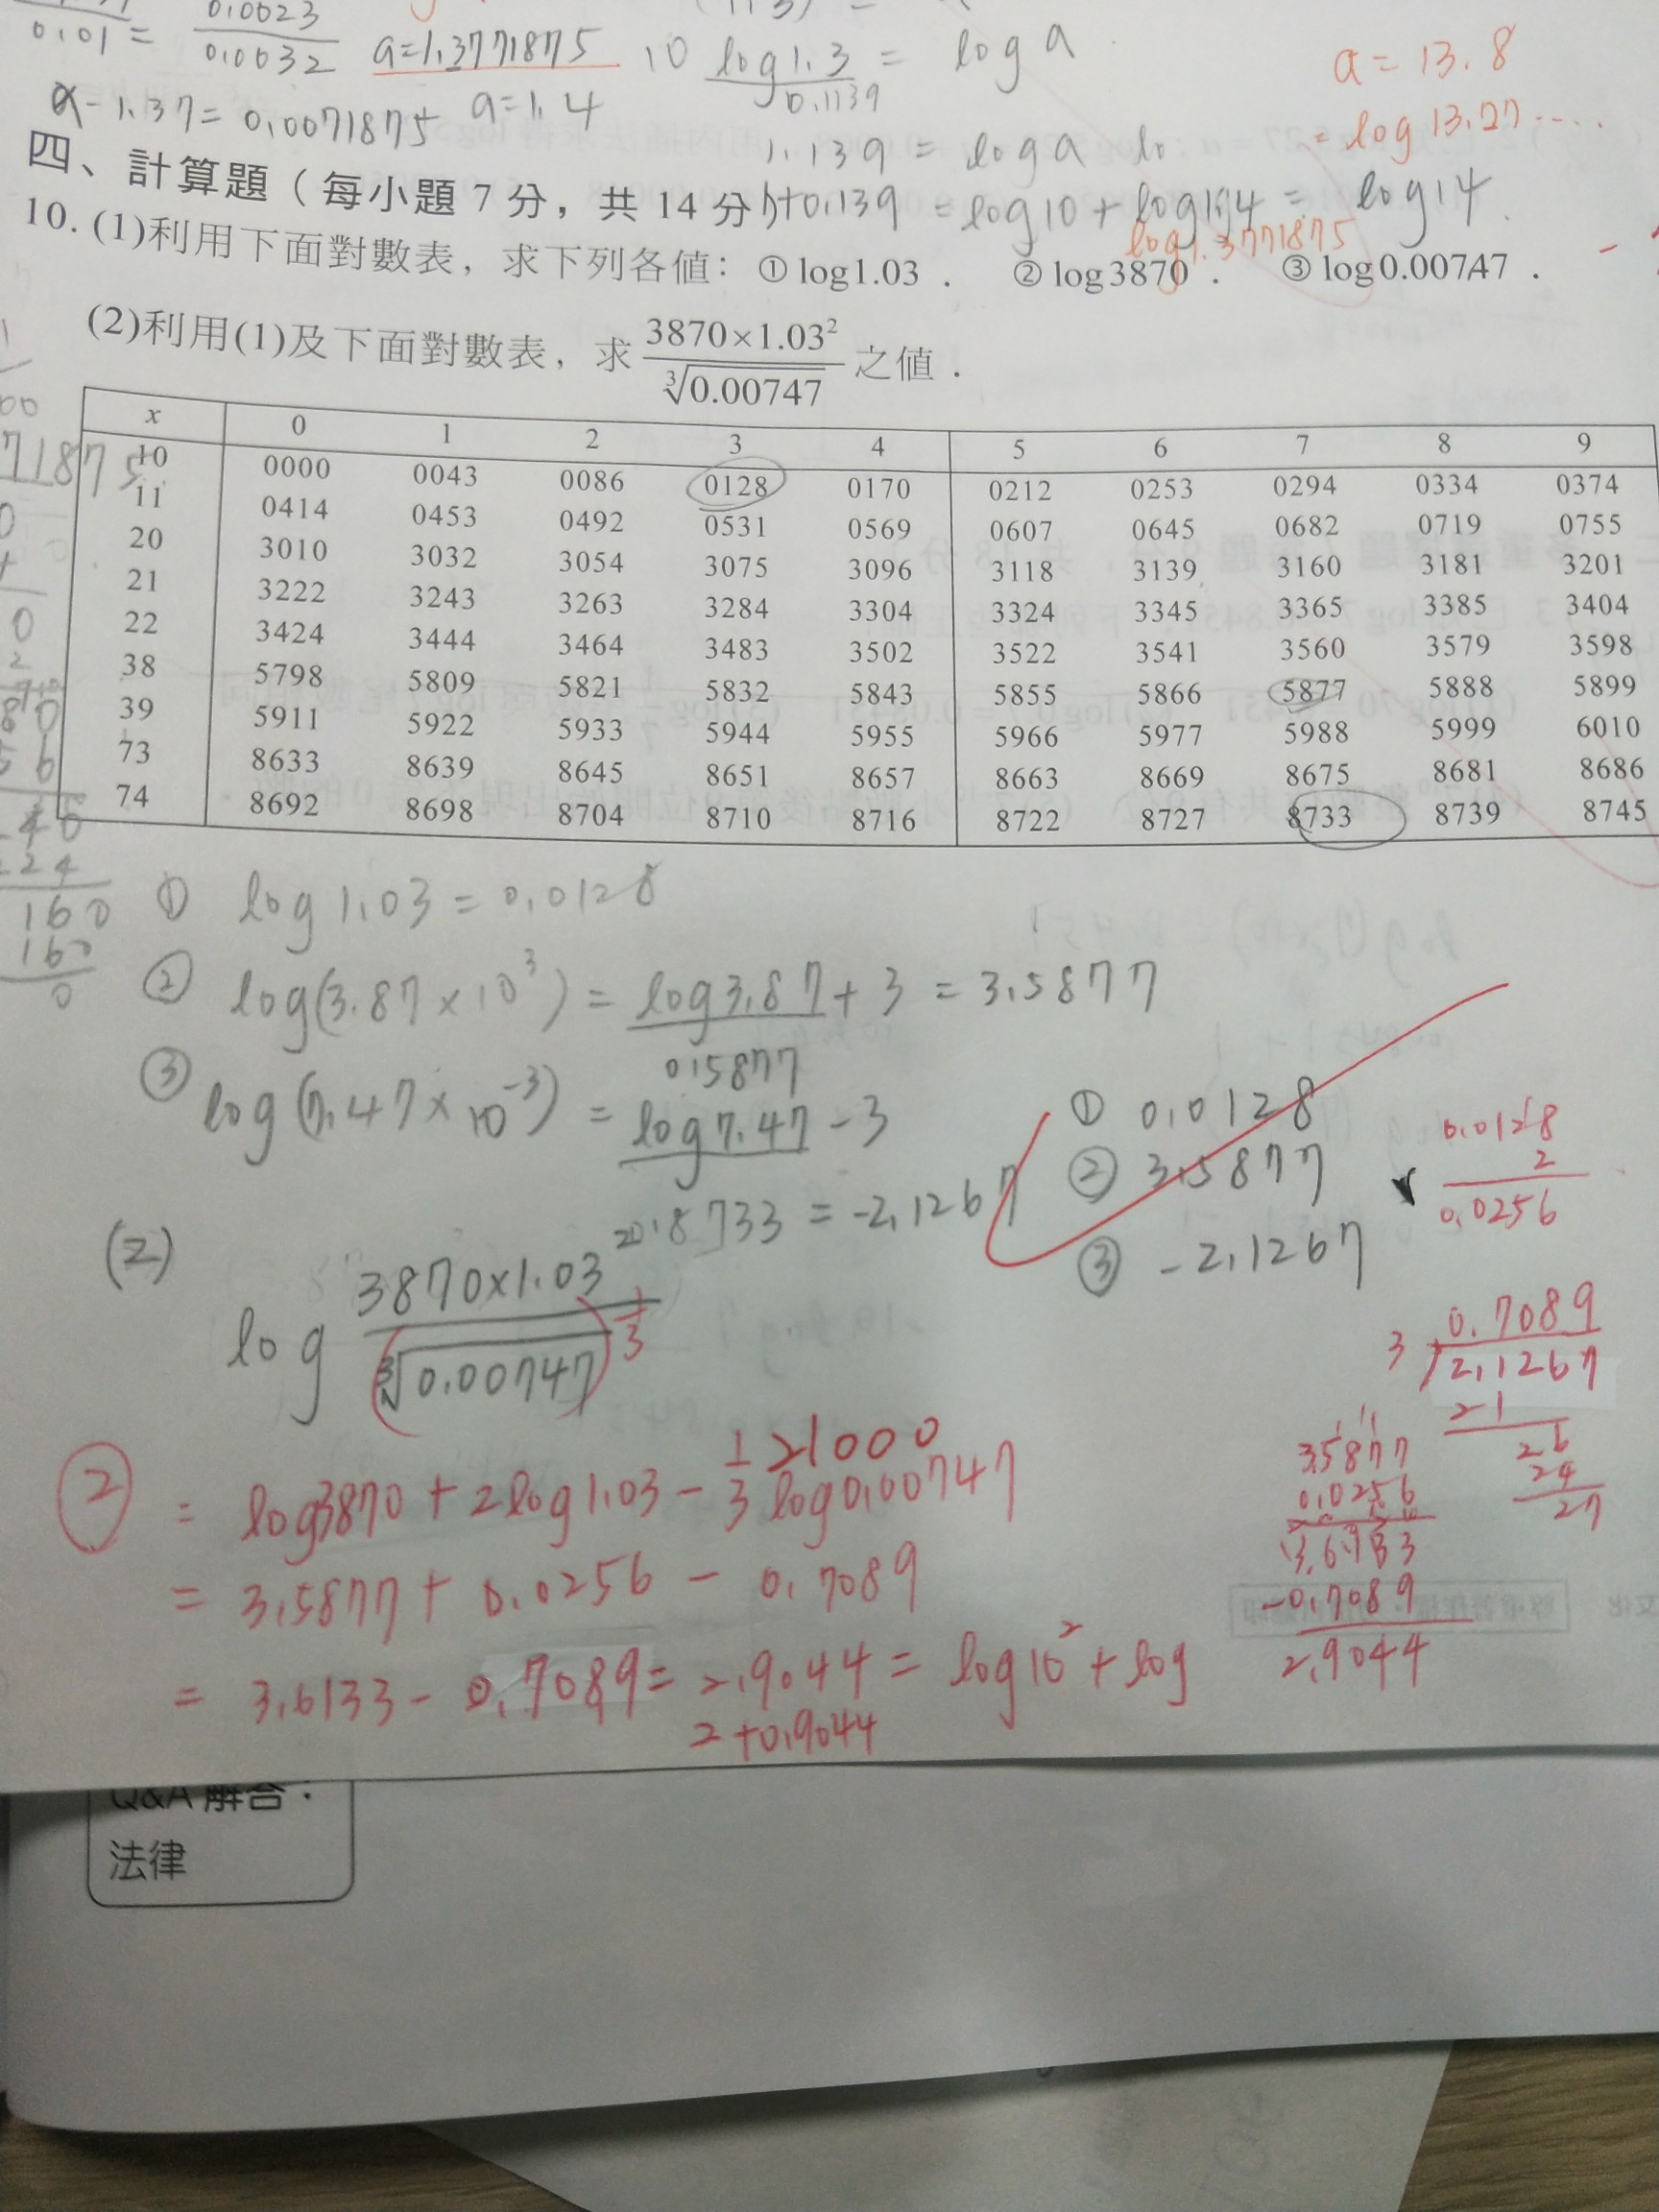 0.01 = 0.0023 / 0.0032 a=1.3771875 10 log1.3 = log a
0.1139
a = 13.8
a - 1.37 = 0.0071875 a=1.4
1.139 = log a = log 13.27....
四、計算題（每小題 7 分，共 14 分） 1+0.139 = log10 + log1.4 = log14
log1.3771875
10. (1)利用下面對數表，求下列各值：①log1.03．②log3870．③log0.00747．
(2)利用(1)及下面對數表，求 3870×1.03² / ∛0.00747 之值．
x 0 1 2 3 4 5 6 7 8 9
10 0000 0043 0086 0128 0170 0212 0253 0294 0334 0374
11 0414 0453 0492 0531 0569 0607 0645 0682 0719 0755
20 3010 3032 3054 3075 3096 3118 3139 3160 3181 3201
21 3222 3243 3263 3284 3304 3324 3345 3365 3385 3404
22 3424 3444 3464 3483 3502 3522 3541 3560 3579 3598
38 5798 5809 5821 5832 5843 5855 5866 5877 5888 5899
39 5911 5922 5933 5944 5955 5966 5977 5988 5999 6010
73 8633 8639 8645 8651 8657 8663 8669 8675 8681 8686
74 8692 8698 8704 8710 8716 8722 8727 8733 8739 8745
160
160
0
① log1.03 = 0.0128
② log(3.87×10³) = log3.87 + 3 = 3.5877
0.5877
③ log(7.47×10⁻³) = log7.47 - 3
0.8733 = -2.1267
① 0.0128
② 3.5877
③ -2.1267
0.0128
2
0.0256
(2)
log 3870×1.03² / (∛0.00747) 1/3
0.7089
3 2.1267
21
26
24
27
② = log3870 + 2log1.03 - 1/3 log0.00747
21000
= 3.5877 + 0.0256 - 0.7089
= 3.6133 - 0.7089 = 2.9044 = log10² + log
2+0.9044
3.5877
0.0256
3.6133
-0.7089
2.9044
Q&A 解答：
法律